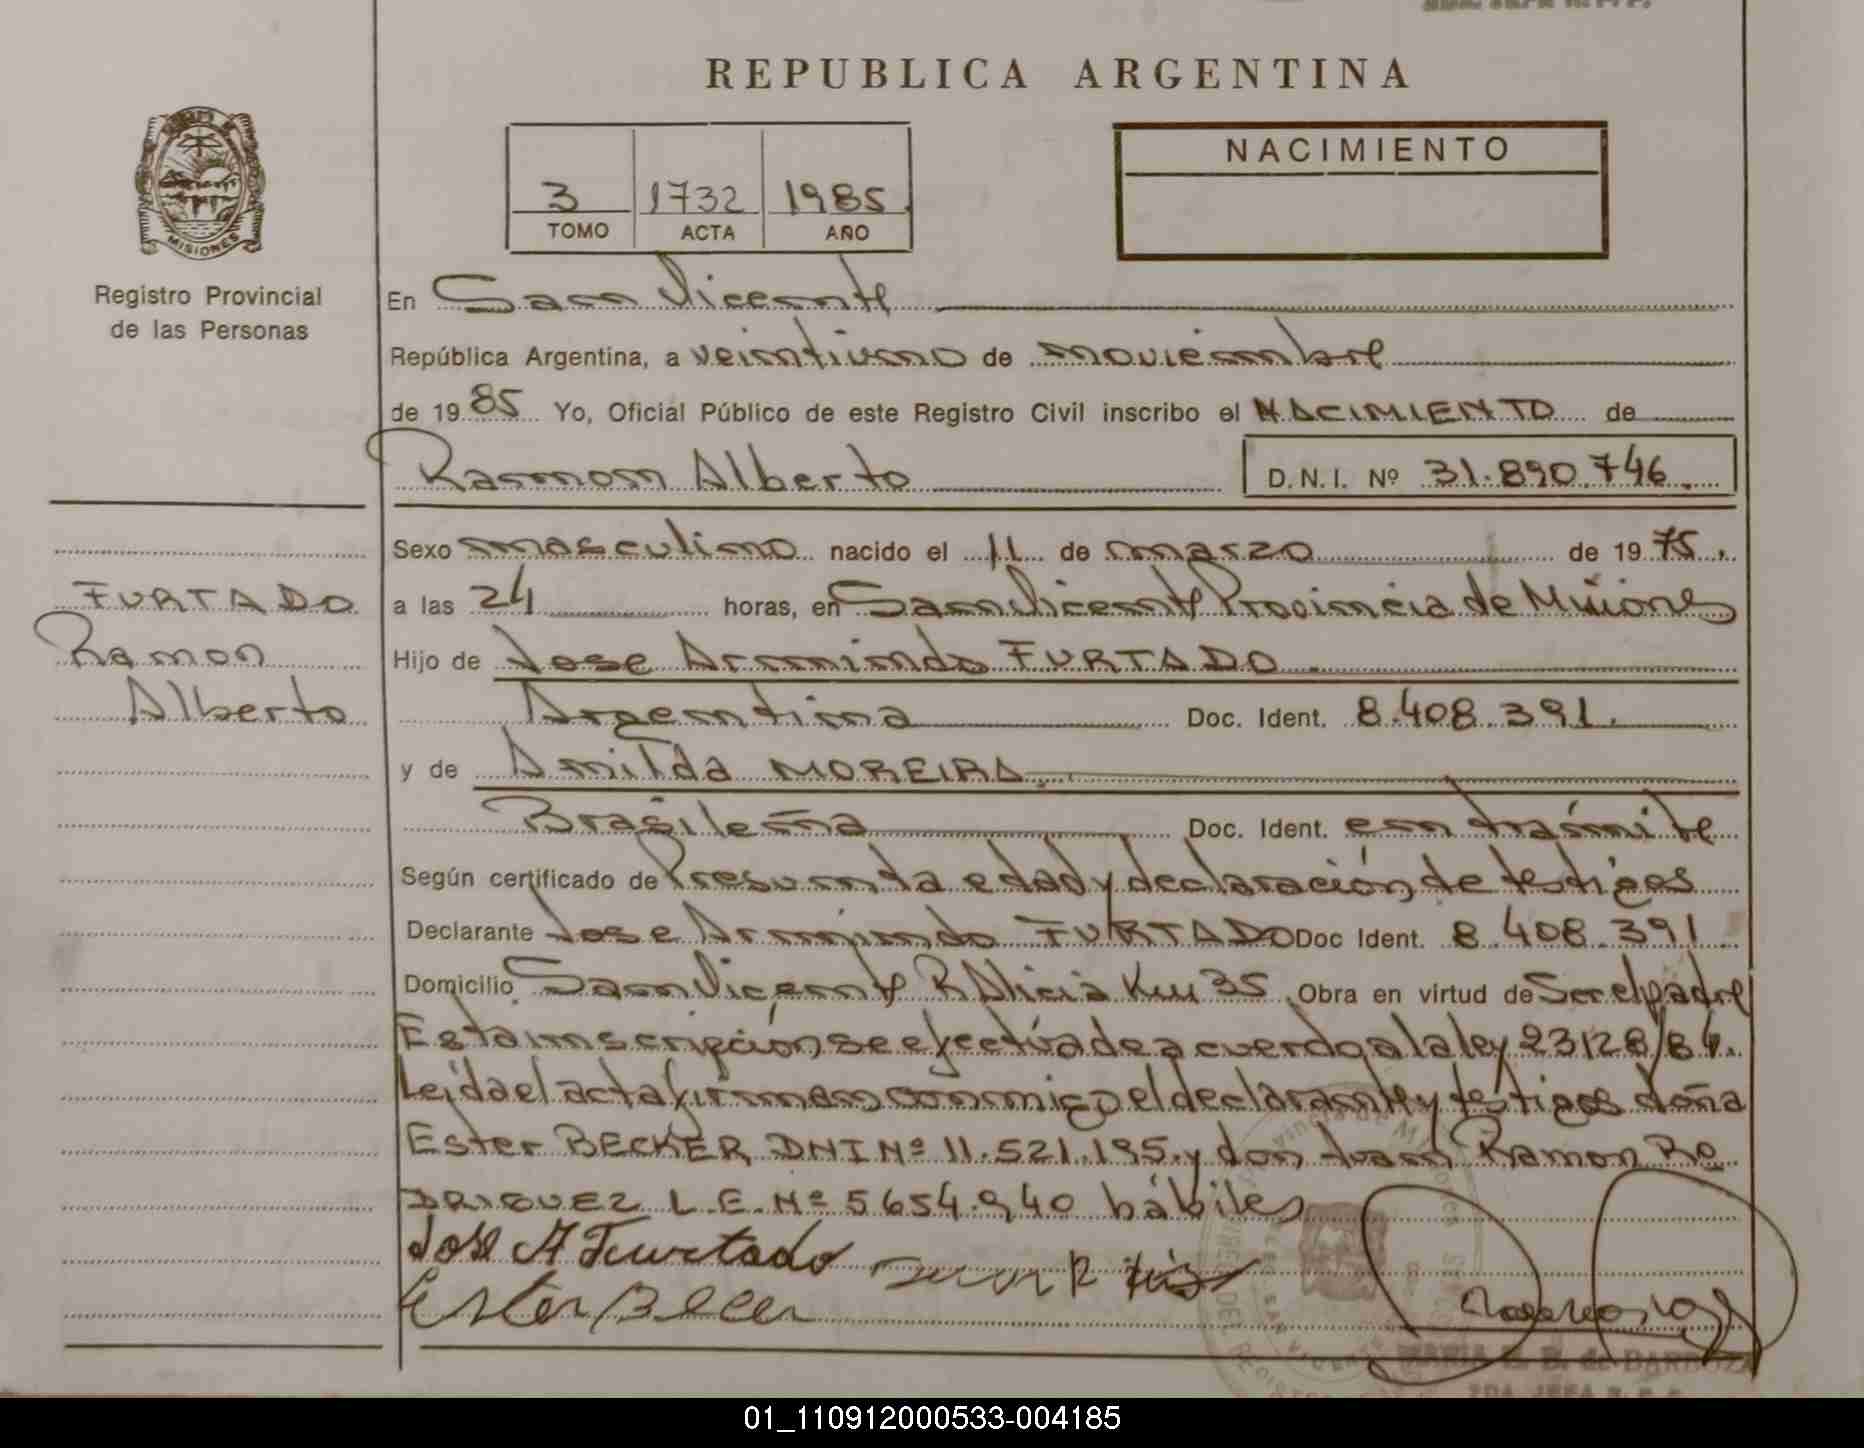 REPUBLICA ARGENTINA
MISIONES
Registro Provincial
de las Personas
3 1732 1985
TOMO ACTA AÑO
NACIMIENTO
En San Vicente
República Argentina, a veintiuno de noviembre
de 19 85 Yo, Oficial Público de este Registro Civil inscribo el NACIMIENTO de
Ramon Alberto D.N.I. Nº 31.890.746.
Sexo masculino nacido el 11 de marzo de 19 75.
FURTADO
Ramon
Alberto
a las 24 horas, en San Vicente Provincia de Misiones
Hijo de Jose Armindo FURTADO
Argentina Doc. Ident. 8.408.391.
y de Amilda MOREIRA
Brasileña Doc. Ident. en trámite
Según certificado de Presunta edad y declaración de testigos
Declarante Jose Armindo FURTADO Doc Ident. 8.408.391
Domicilio San Vicente R Alicia Km 35 Obra en virtud de Ser el padre
Esta inscripción se efectúa de acuerdo a la ley 23128/84.
Leída el acta firman conmigo el declarante y testigos doña
Ester BECKER DNI Nº 11.521.195. y don Juan Ramon RO
DRIGUEZ L.E. Nº 5654.940 hábiles
Jose A Furtado
Ester Becer
MARIA E. B. de BARBOZA
01_110912000533-004185